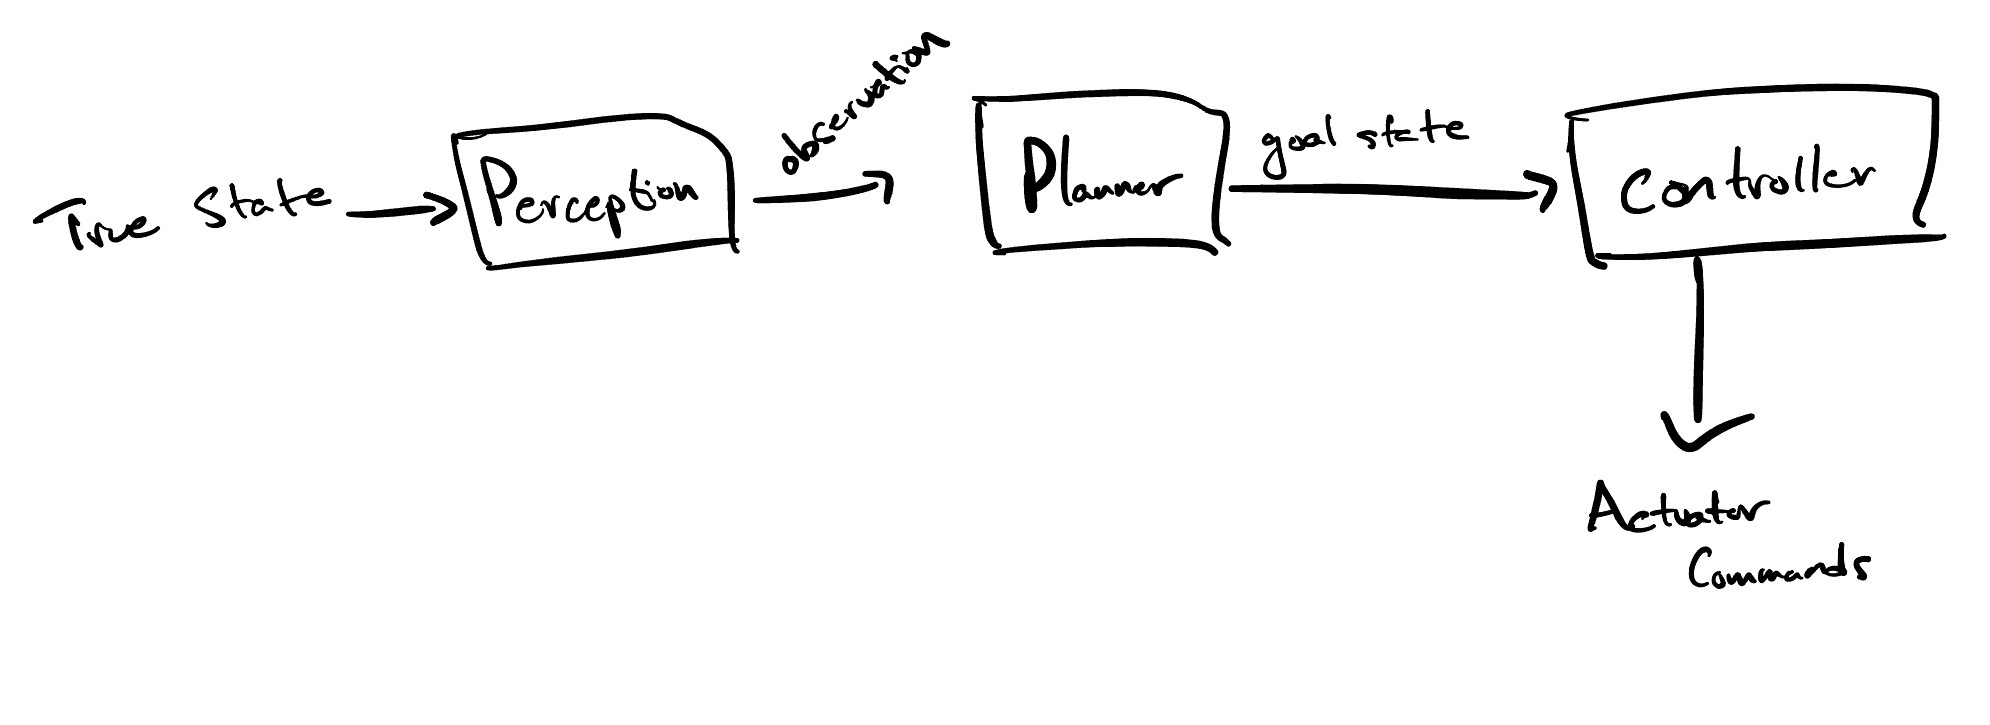 True State
Perception
observation
Planner
goal state
Controller
Actuator
Commands